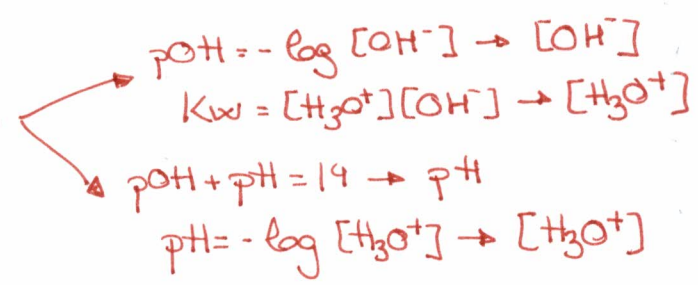 pOH = - log [OH⁻] → [OH⁻]
Kw = [H₃O⁺][OH⁻] → [H₃O⁺]
pOH + pH = 14 → pH
pH = - log [H₃O⁺] → [H₃O⁺]